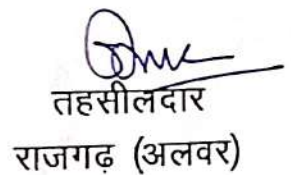 तहसीलदार
राजगढ़ (अलवर)